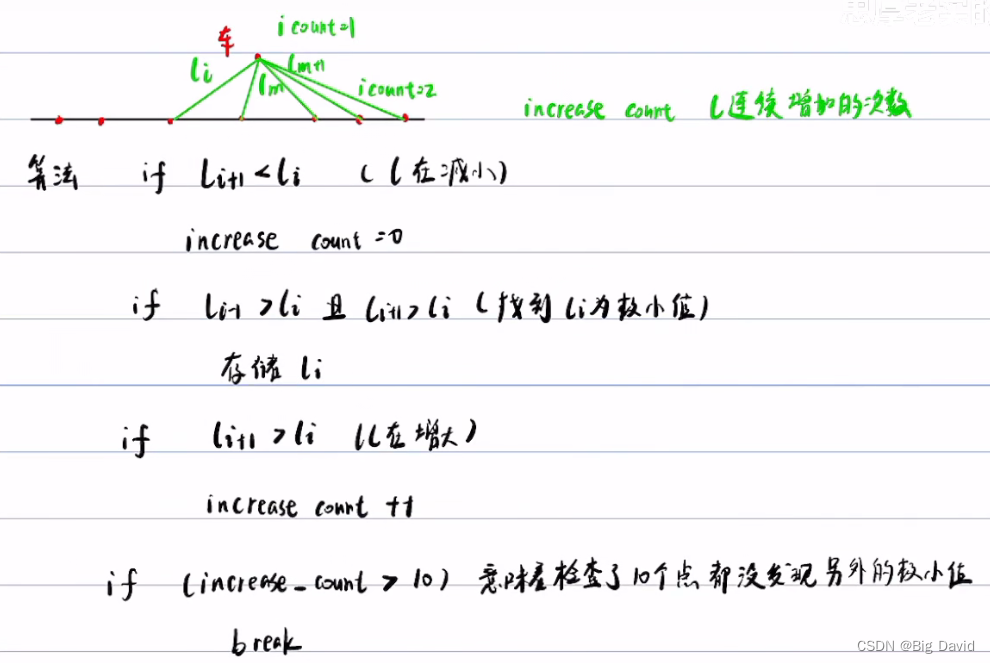 车 icount=1
li lm lm+1 icount=2
increase count l连续增加的次数
算法 if li+1<li (l在减小)
increase count=0
if li-1>li 且 li+1>li (找到li为极小值)
存储 li
if li+1>li (l在增大)
increase count ++
if (increase_count > 10) 意味着检查了10个点都没发现另外的极小值
break
CSDN @Big David